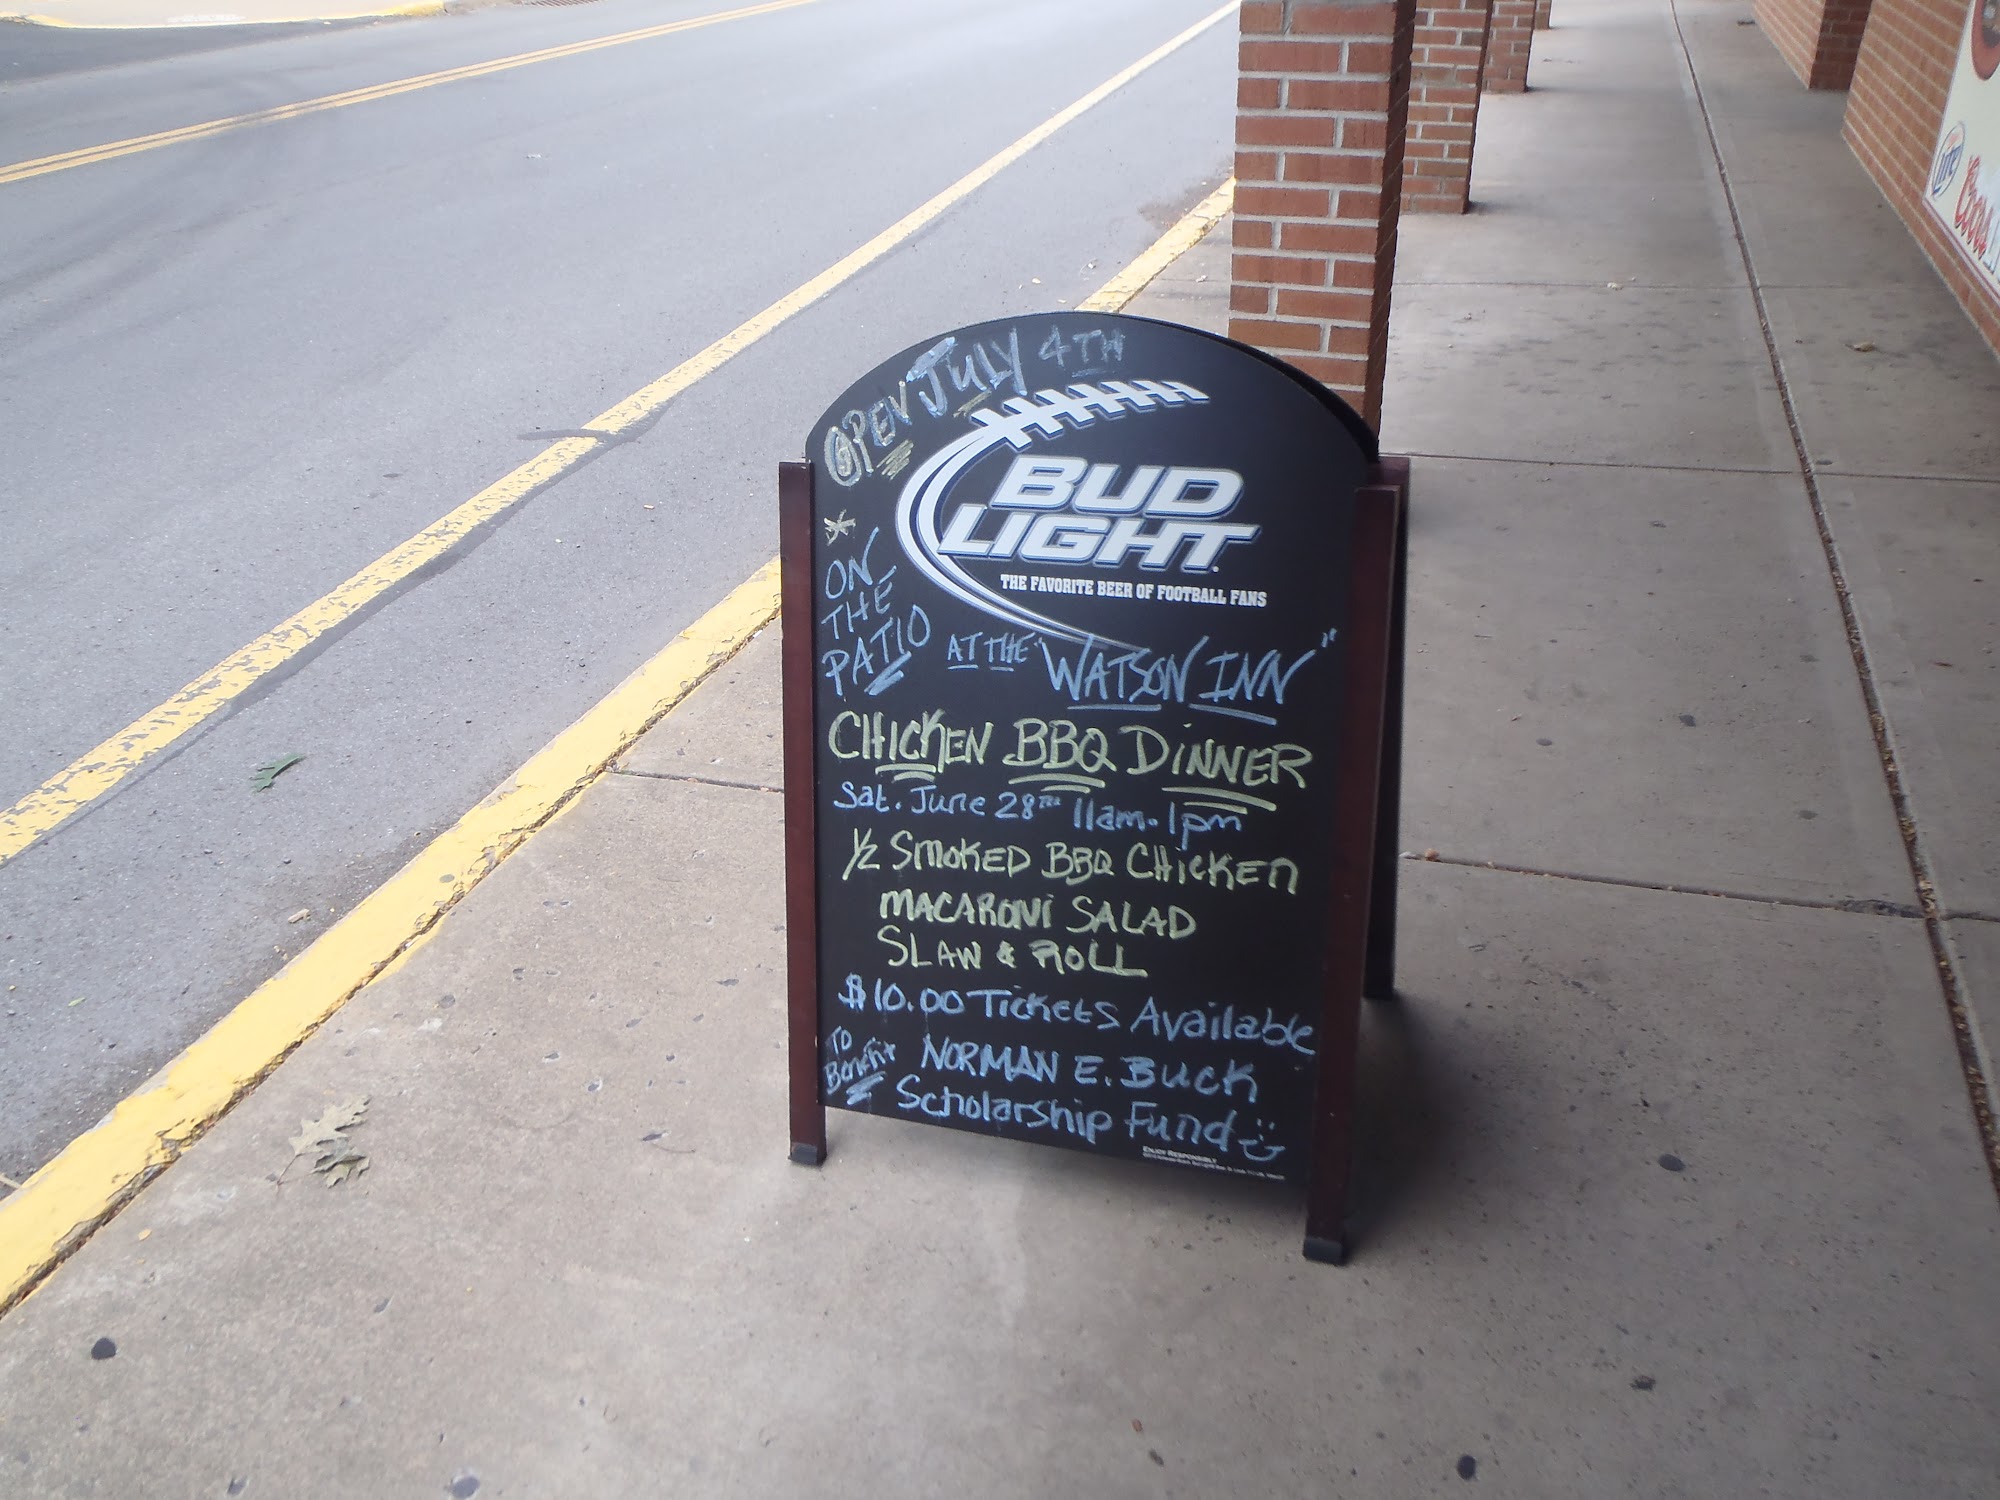 OPEN JULY 4TH
BUD
LIGHT
THE FAVORITE BEER OF FOOTBALL FANS
* ON
THE
PATIO
AT THE "WATSON INN"
CHICKEN BBQ DINNER
Sat. June 28TH 11am. 1pm
1/2 SMOKED BBQ CHICKEN
MACARONI SALAD
SLAW & ROLL
$10.00 Tickets Available
TO
Benefit
NORMAN E. BUCK
Scholarship Fund
ENJOY RESPONSIBLY
Lite
Coors